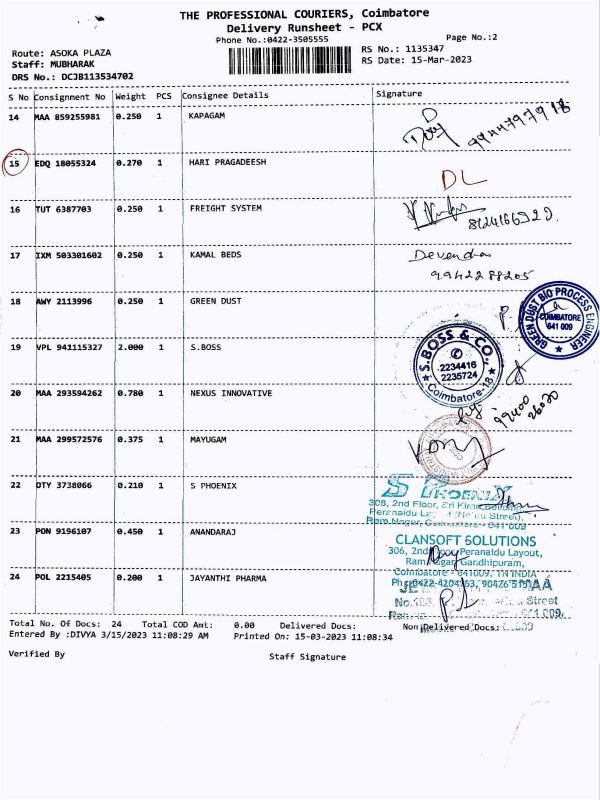 THE PROFESSIONAL COURIERS, Coimbatore
Delivery Runsheet - PCX
Phone No.:0422-3505555
Page No.:2
Route: ASOKA PLAZA
RS No.: 1135347
Staff: MUBHARAK
RS Date: 15-Mar-2023
DRS No.: DCJB113534702
S No Consignment No Weight PCS Consignee Details Signature
14 MAA 859255981 0.250 1 KAPAGAM
15 EDQ 18055324 0.270 1 HARI PRAGADEESH DL
16 TUT 6387703 0.250 1 FREIGHT SYSTEM
17 IXM 503301602 0.250 1 KAMAL BEDS Devendra
9942288205
18 AWY 2113996 0.250 1 GREEN DUST
GREEN DUST BIO PROCESS ENGINEER
COIMBATORE
641 009
19 VPL 941115327 2.000 1 S.BOSS
S.BOSS & CO.,
2234416
2235724
Coimbatore-18
20 MAA 293594262 0.780 1 NEXUS INNOVATIVE
99400
26020
21 MAA 299572576 0.375 1 MAYUGAM
22 DTY 3738066 0.210 1 S PHOENIX
S PHOENIX
308, 2nd Floor, Sri
Peranaidu Street),
Ram Nagar, Coimbatore - 641 009
23 PDN 9196107 0.450 1 ANANDARAJ
CLANSOFT SOLUTIONS
306, 2nd Floor, Peranaidu Layout,
Ram Nagar, Gandhipuram,
Coimbatore - 641009. TN INDIA
24 POL 2215405 0.200 1 JAYANTHI PHARMA
Total No. Of Docs: 24 Total COD Amt: 0.00 Delivered Docs: Non Delivered Docs:
Entered By :DIVYA 3/15/2023 11:08:29 AM Printed On: 15-03-2023 11:08:34
Verified By Staff Signature